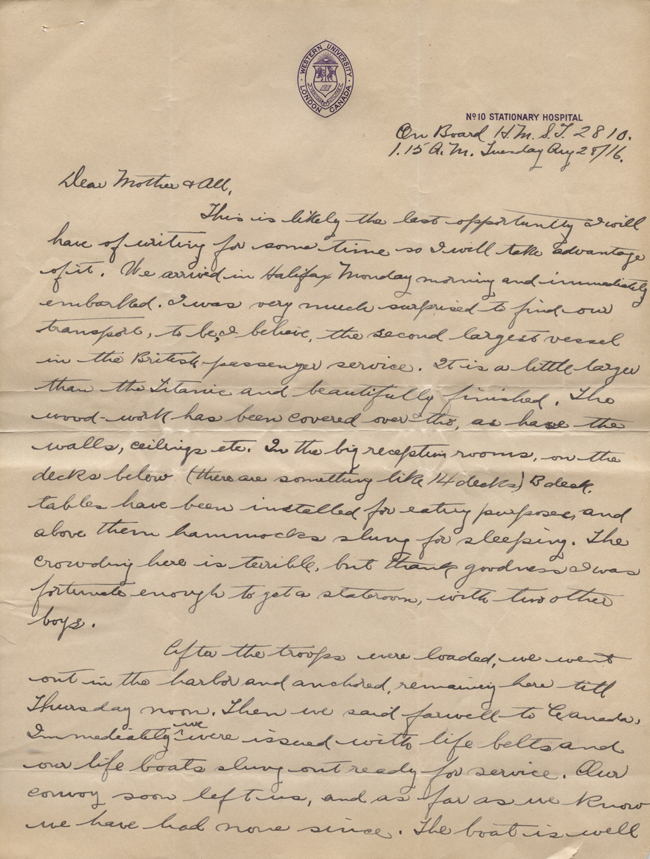 WESTERN UNIVERSITY
LONDON CANADA
Nº 10 STATIONARY HOSPITAL
On Board H.M.S.T. 2810.
1.15 A.M. Tuesday Aug 28/16.
Dear Mother & All,
This is likely the last opportunity I will
have of writing for some time so I will take advantage
of it. We arrived in Halifax Monday morning and immediately
embarked. I was very much surprised to find our
transport, to be, I believe, the second largest vessel
in the British passenger service. It is a little larger
than the Titanic and beautifully finished. The
wood-work has been covered over tho, as have the
walls, ceilings etc. In the big reception rooms, on the
decks below (there are something like 14 decks) B deck,
tables have been installed for eating purposes, and
above them hammocks slung for sleeping. The
crowding here is terrible, but thank goodness I was
fortunate enough to get a stateroom, with two other
boys.
After the troops were loaded, we went
out in the harbor and anchored, remaining here till
Thursday noon. Then we said farwell to Canada.
Immediately we were issued with life belts and
our life boats slung out ready for service. Our
convoy soon left us, and as far as we know
we have had none since. The boat is well